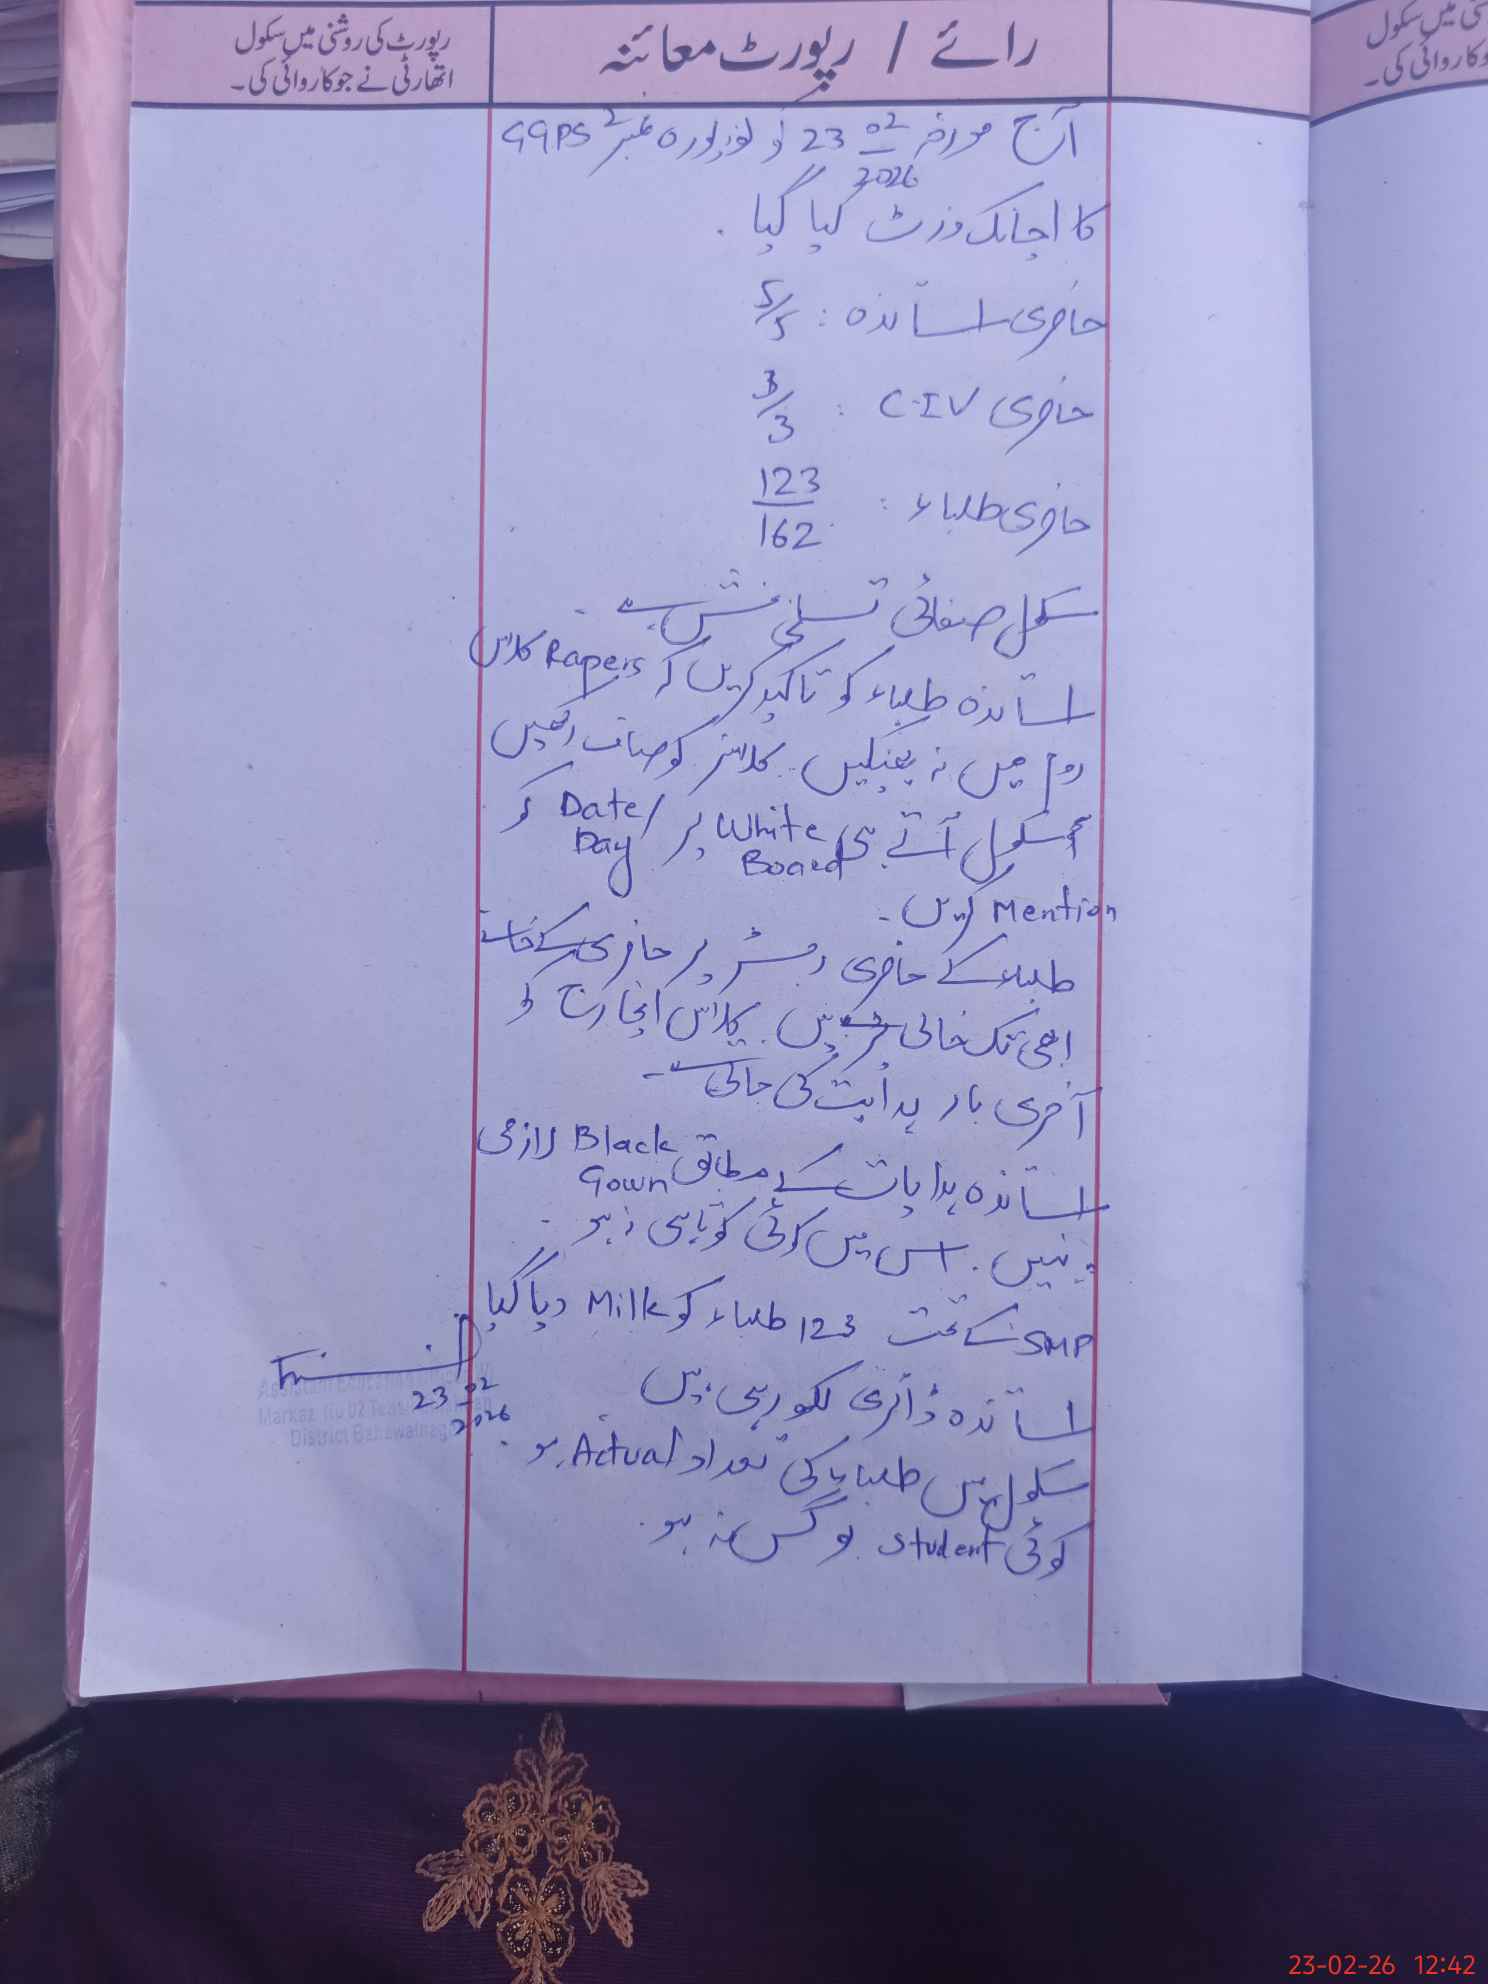 رپورٹ کی روشنی میں سکول
اتھارٹی نے جو کاروائی کی۔
رائے / رپورٹ معائنہ
آج مورخہ 23 02 2026 کو نمبر 2 GGPS
کا اچانک وزٹ کیا گیا۔
حاضری اساتذہ : 5/5
حاضری C-IV : 3/3
حاضری طلباء : 123/162
سکول صفائی تسلی بخش ہے۔
اساتذہ طلباء کو تاکید کریں کہ Rapers کلاس
روم میں نہ پھینکیں۔ کلاسز کو صاف رکھیں
سکول آتے ہی White Board پر Date/Day کو
Mention کریں۔
طلباء کے حاضری رجسٹر پر حاضری کے خانے
ابھی تک خالی ہیں۔ کلاس انچارج کو
آخری بار ہدایت کی جاتی ہے۔
اساتذہ ہدایات کے مطابق Black Gown لازمی
پہنیں۔ اس میں کوئی کوتاہی نہ ہو۔
SMP کے تحت 123 طلباء کو Milk دیا گیا
اساتذہ ڈائری لکھ رہی ہیں۔
سکول میں طلباء کی تعداد Actual ہو۔
کوئی Student بوگس نہ ہو۔
23 02 2026
Markaz No 02
District Bahawalnagar
23-02-26 12:42